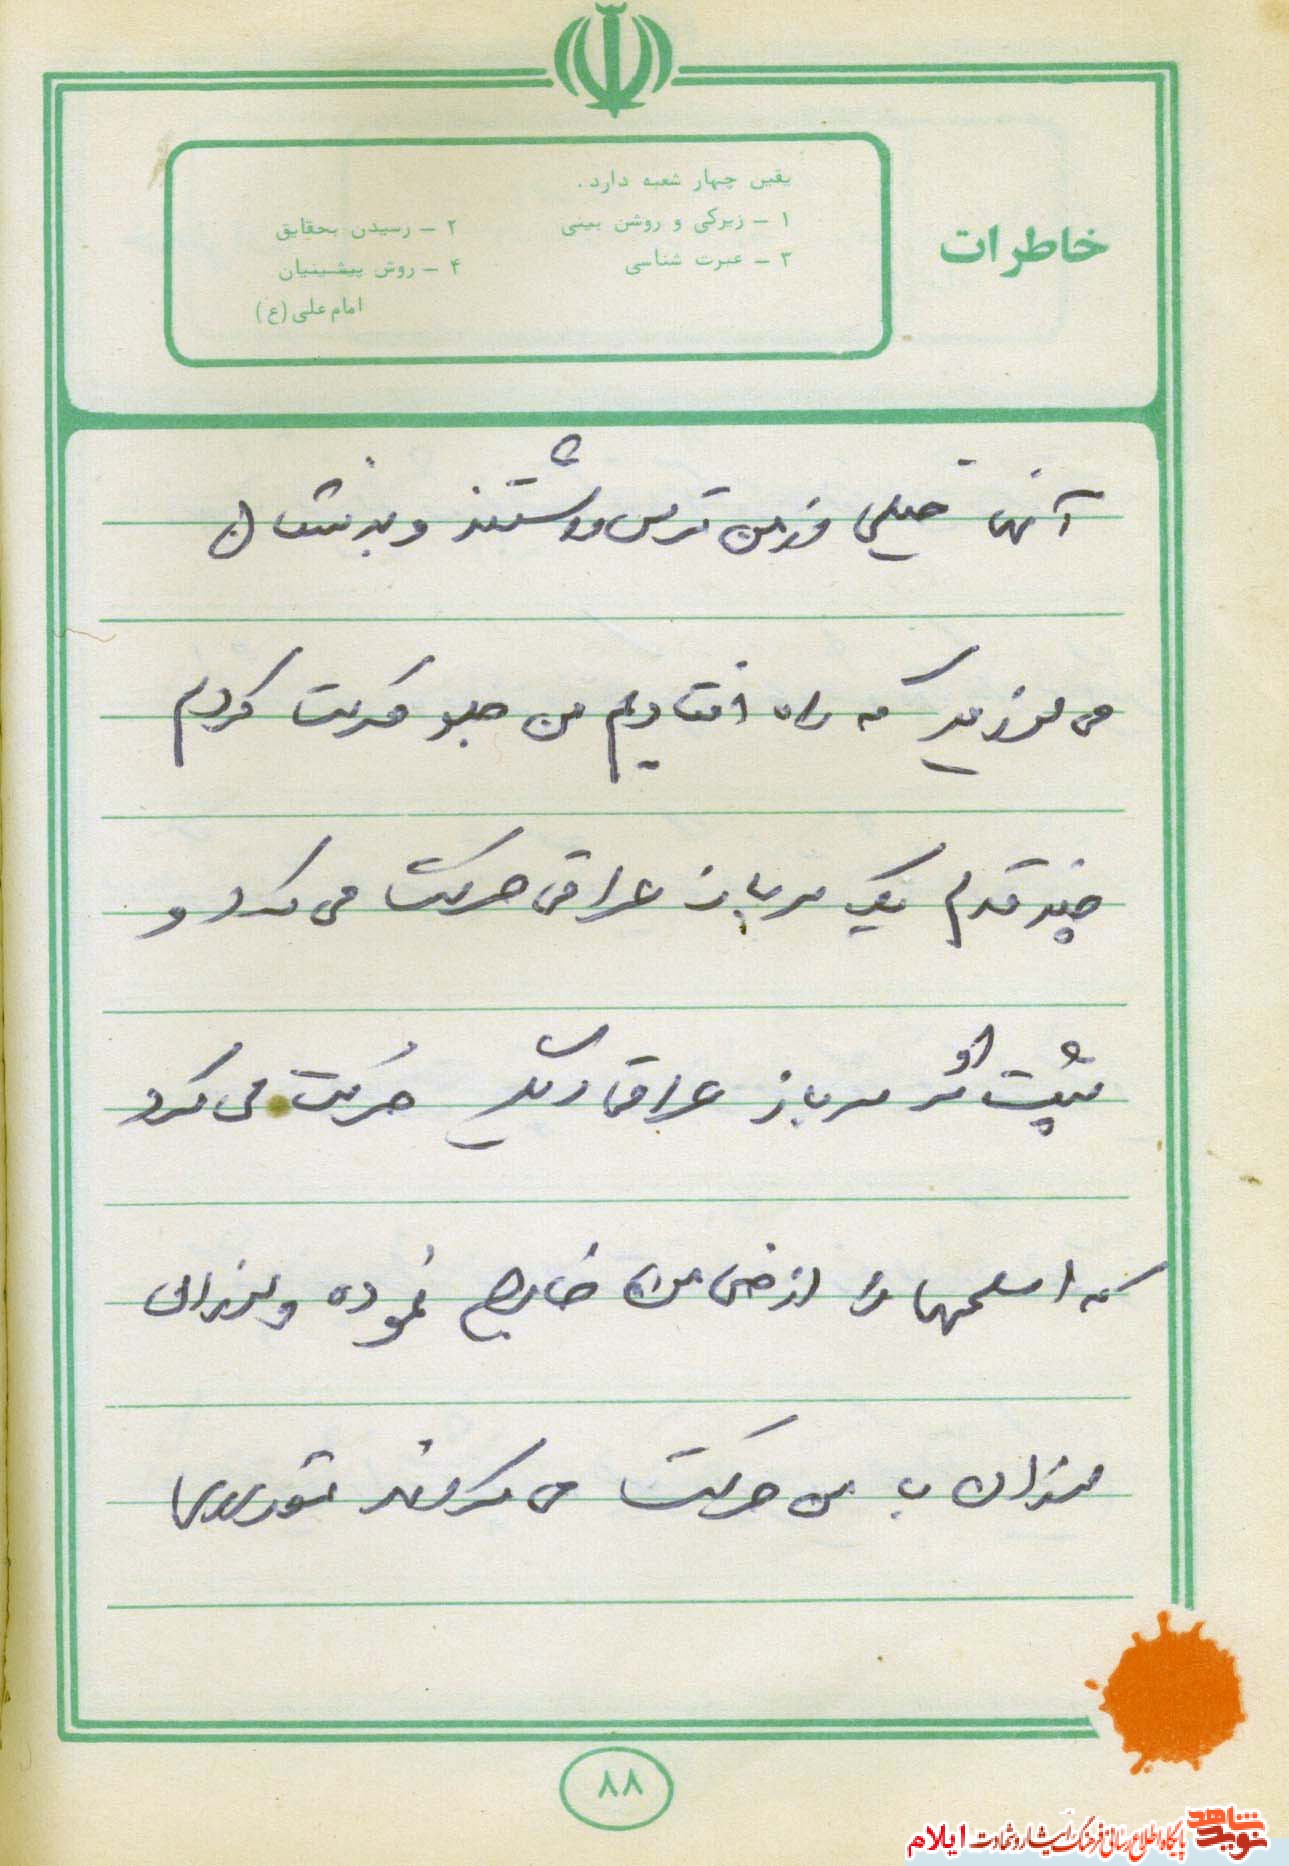 خاطرات
یقین چهار شعبه دارد.
۱ – زیرکی و روشن بینی ۲ – رسیدن بحقایق
۳ – عبرت شناسی ۴ – روش پیشینیان
امام علی (ع)
آنها خیلی از من ترس داشتند و بدنشان
می لرزید که راه افتادیم من جلو حرکت کردم
چند قدم یک سرباز عراقی حرکت می کرد و
پشت او سرباز عراقی دیگر حرکت می کرد
که اسلحه‌ها را از من خارج نموده و لرزان
لرزان با من حرکت می کردند
۸۸
نوید شاهد
پایگاه اطلاع رسانی فرهنگ ایثار و شهادت ایلام